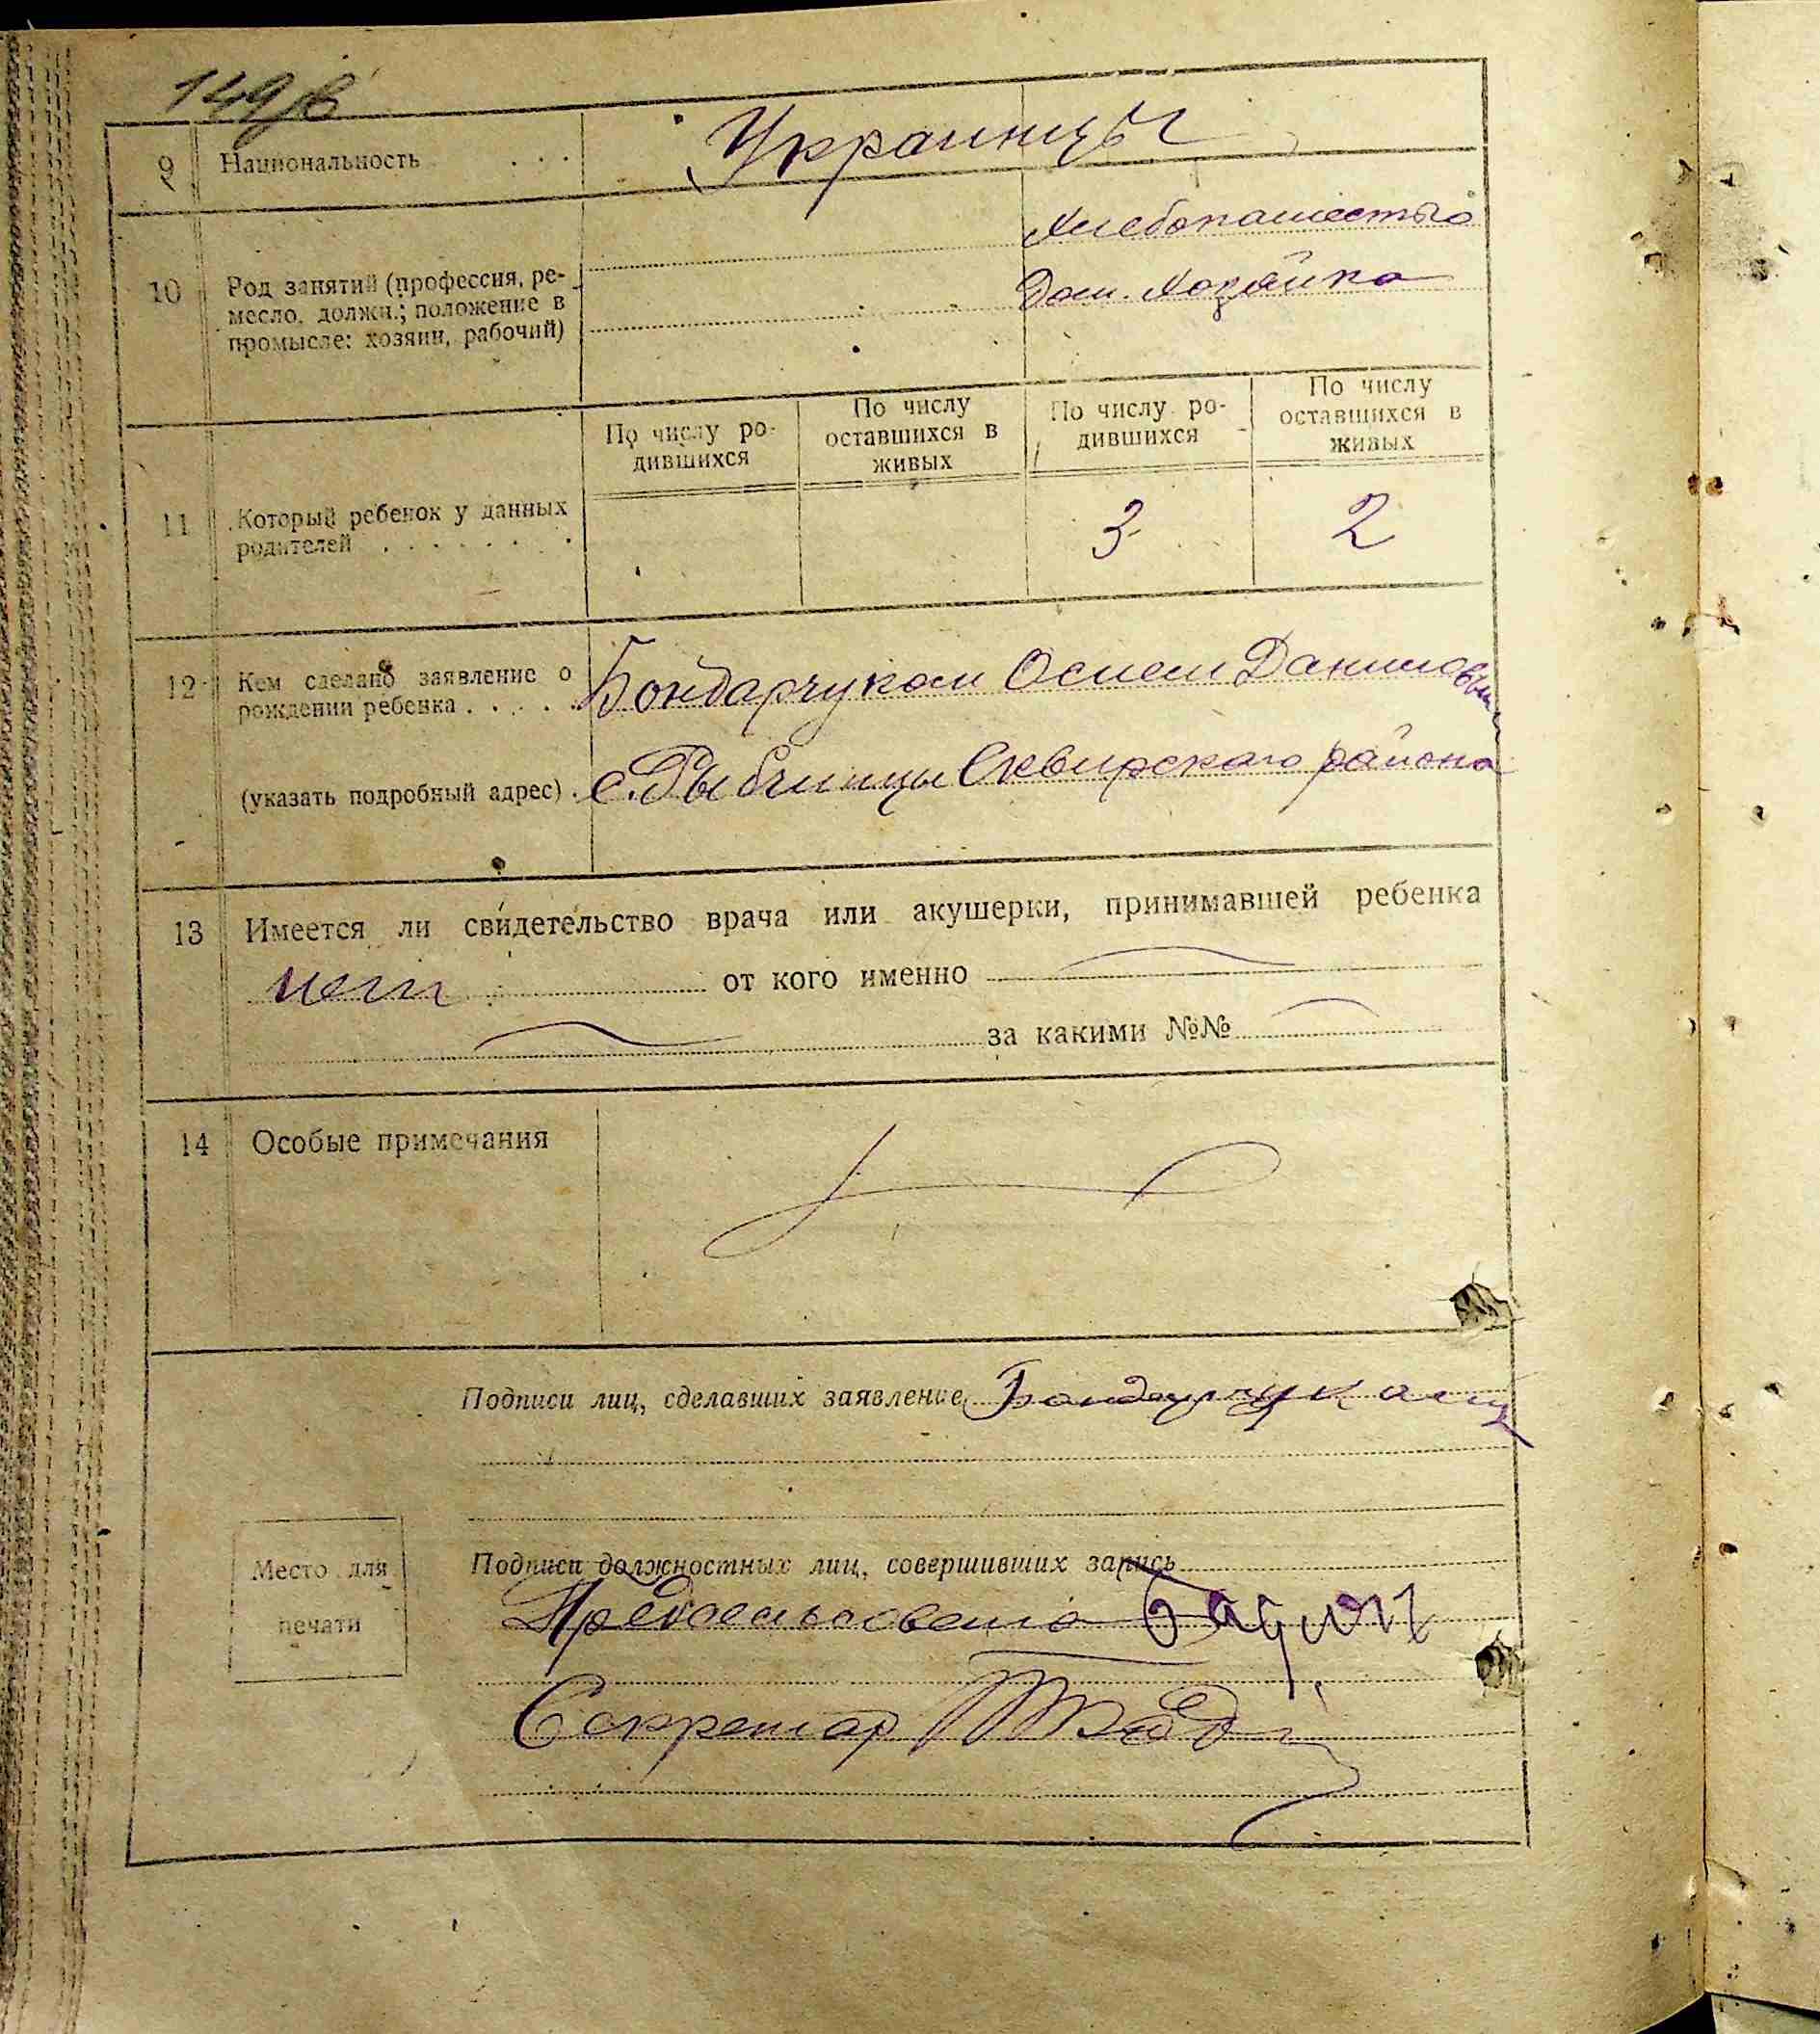 9 Национальность . . . Украинцы
Хлебопашество
10 Род занятий (профессия, ре-
месло, должн.; положение в
промысле: хозяин, рабочий)
Дом. Хозяйка
По числу ро-
дившихся
По числу
оставшихся в
живых
По числу ро-
дившихся
По числу
оставшихся в
живых
11 Который ребенок у данных
родителей . . . . . . . .
3 2
12 Кем сделано заявление о
рождении ребенка . . . . .
Бондарчуком Осием Даниловым
(указать подробный адрес) . с. Рыбчинцы Сквирского района
13 Имеется ли свидетельство врача или акушерки, принимавшей ребенка
нет от кого именно
за какими №№
14 Особые примечания
Подписи лиц, сделавших заявление Бондарчук
Место для
печати
Подписи должностных лиц, совершивших запись
Предсельсовета
Секретар